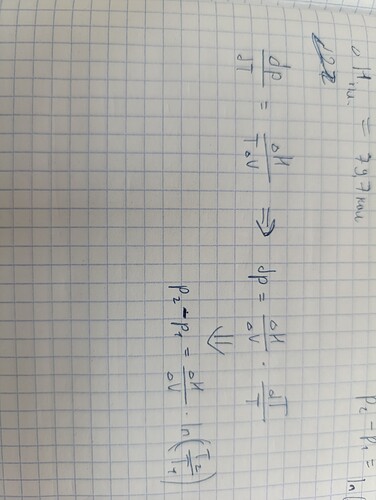 ΔHпл. = 79,7 кал
dp/dT = ΔH/(TΔV) ⇒ dp = ΔH/ΔV · dT/T
⇓
p₂ - p₁ = ΔH/ΔV · ln(T₂/T₁)
p₂ - p₁ = ln(